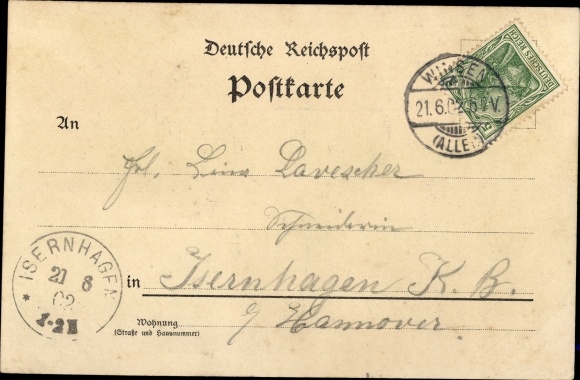 Deutsche Reichspost
Postkarte
WINSEN
21.6.02 6-7 V.
(ALLER)
DEUTSCHES REICH
An
Frl. Lina Lavescher
Schneiderin
in Isernhagen K. B.
b/ Hannover
ISERNHAGEN
21 6
02
1-2 N
Wohnung
(Straße und Hausnummer)